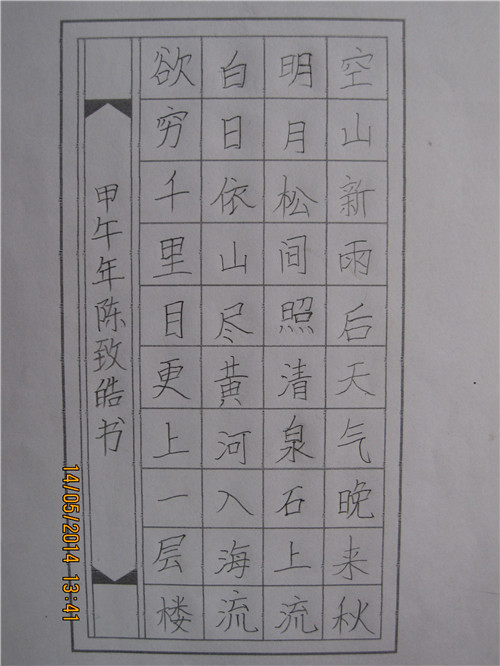 空山新雨后天气晚来秋
明月松间照清泉石上流
白日依山尽黄河入海流
欲穷千里目更上一层楼
甲午年陈致皓书
14/05/2014 13:41